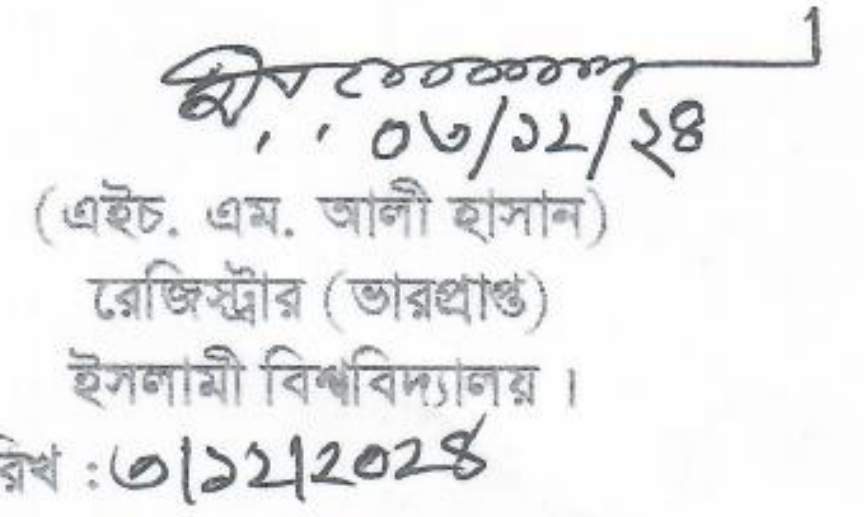 ০৩/১২/২৪
(এইচ. এম. আলী হাসান)
রেজিস্ট্রার (ভারপ্রাপ্ত)
ইসলামী বিশ্ববিদ্যালয় ।
রিখ : ৩/১২/২০২৪